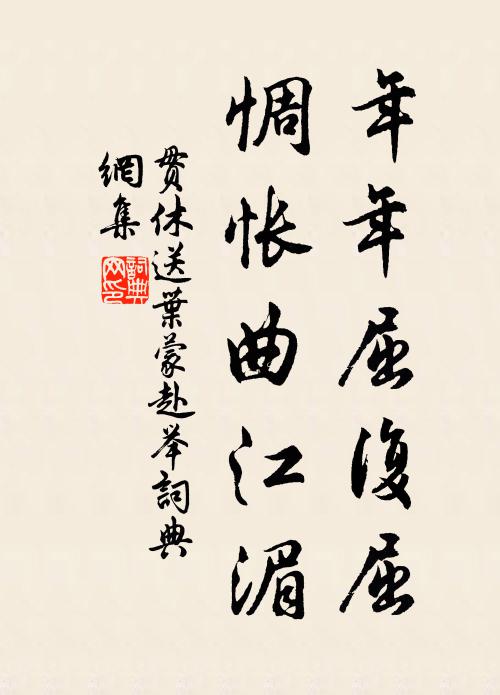 年年屈復屈
惆悵曲江湄
貫休送葉蒙赴举詞典
網集
詞典網印